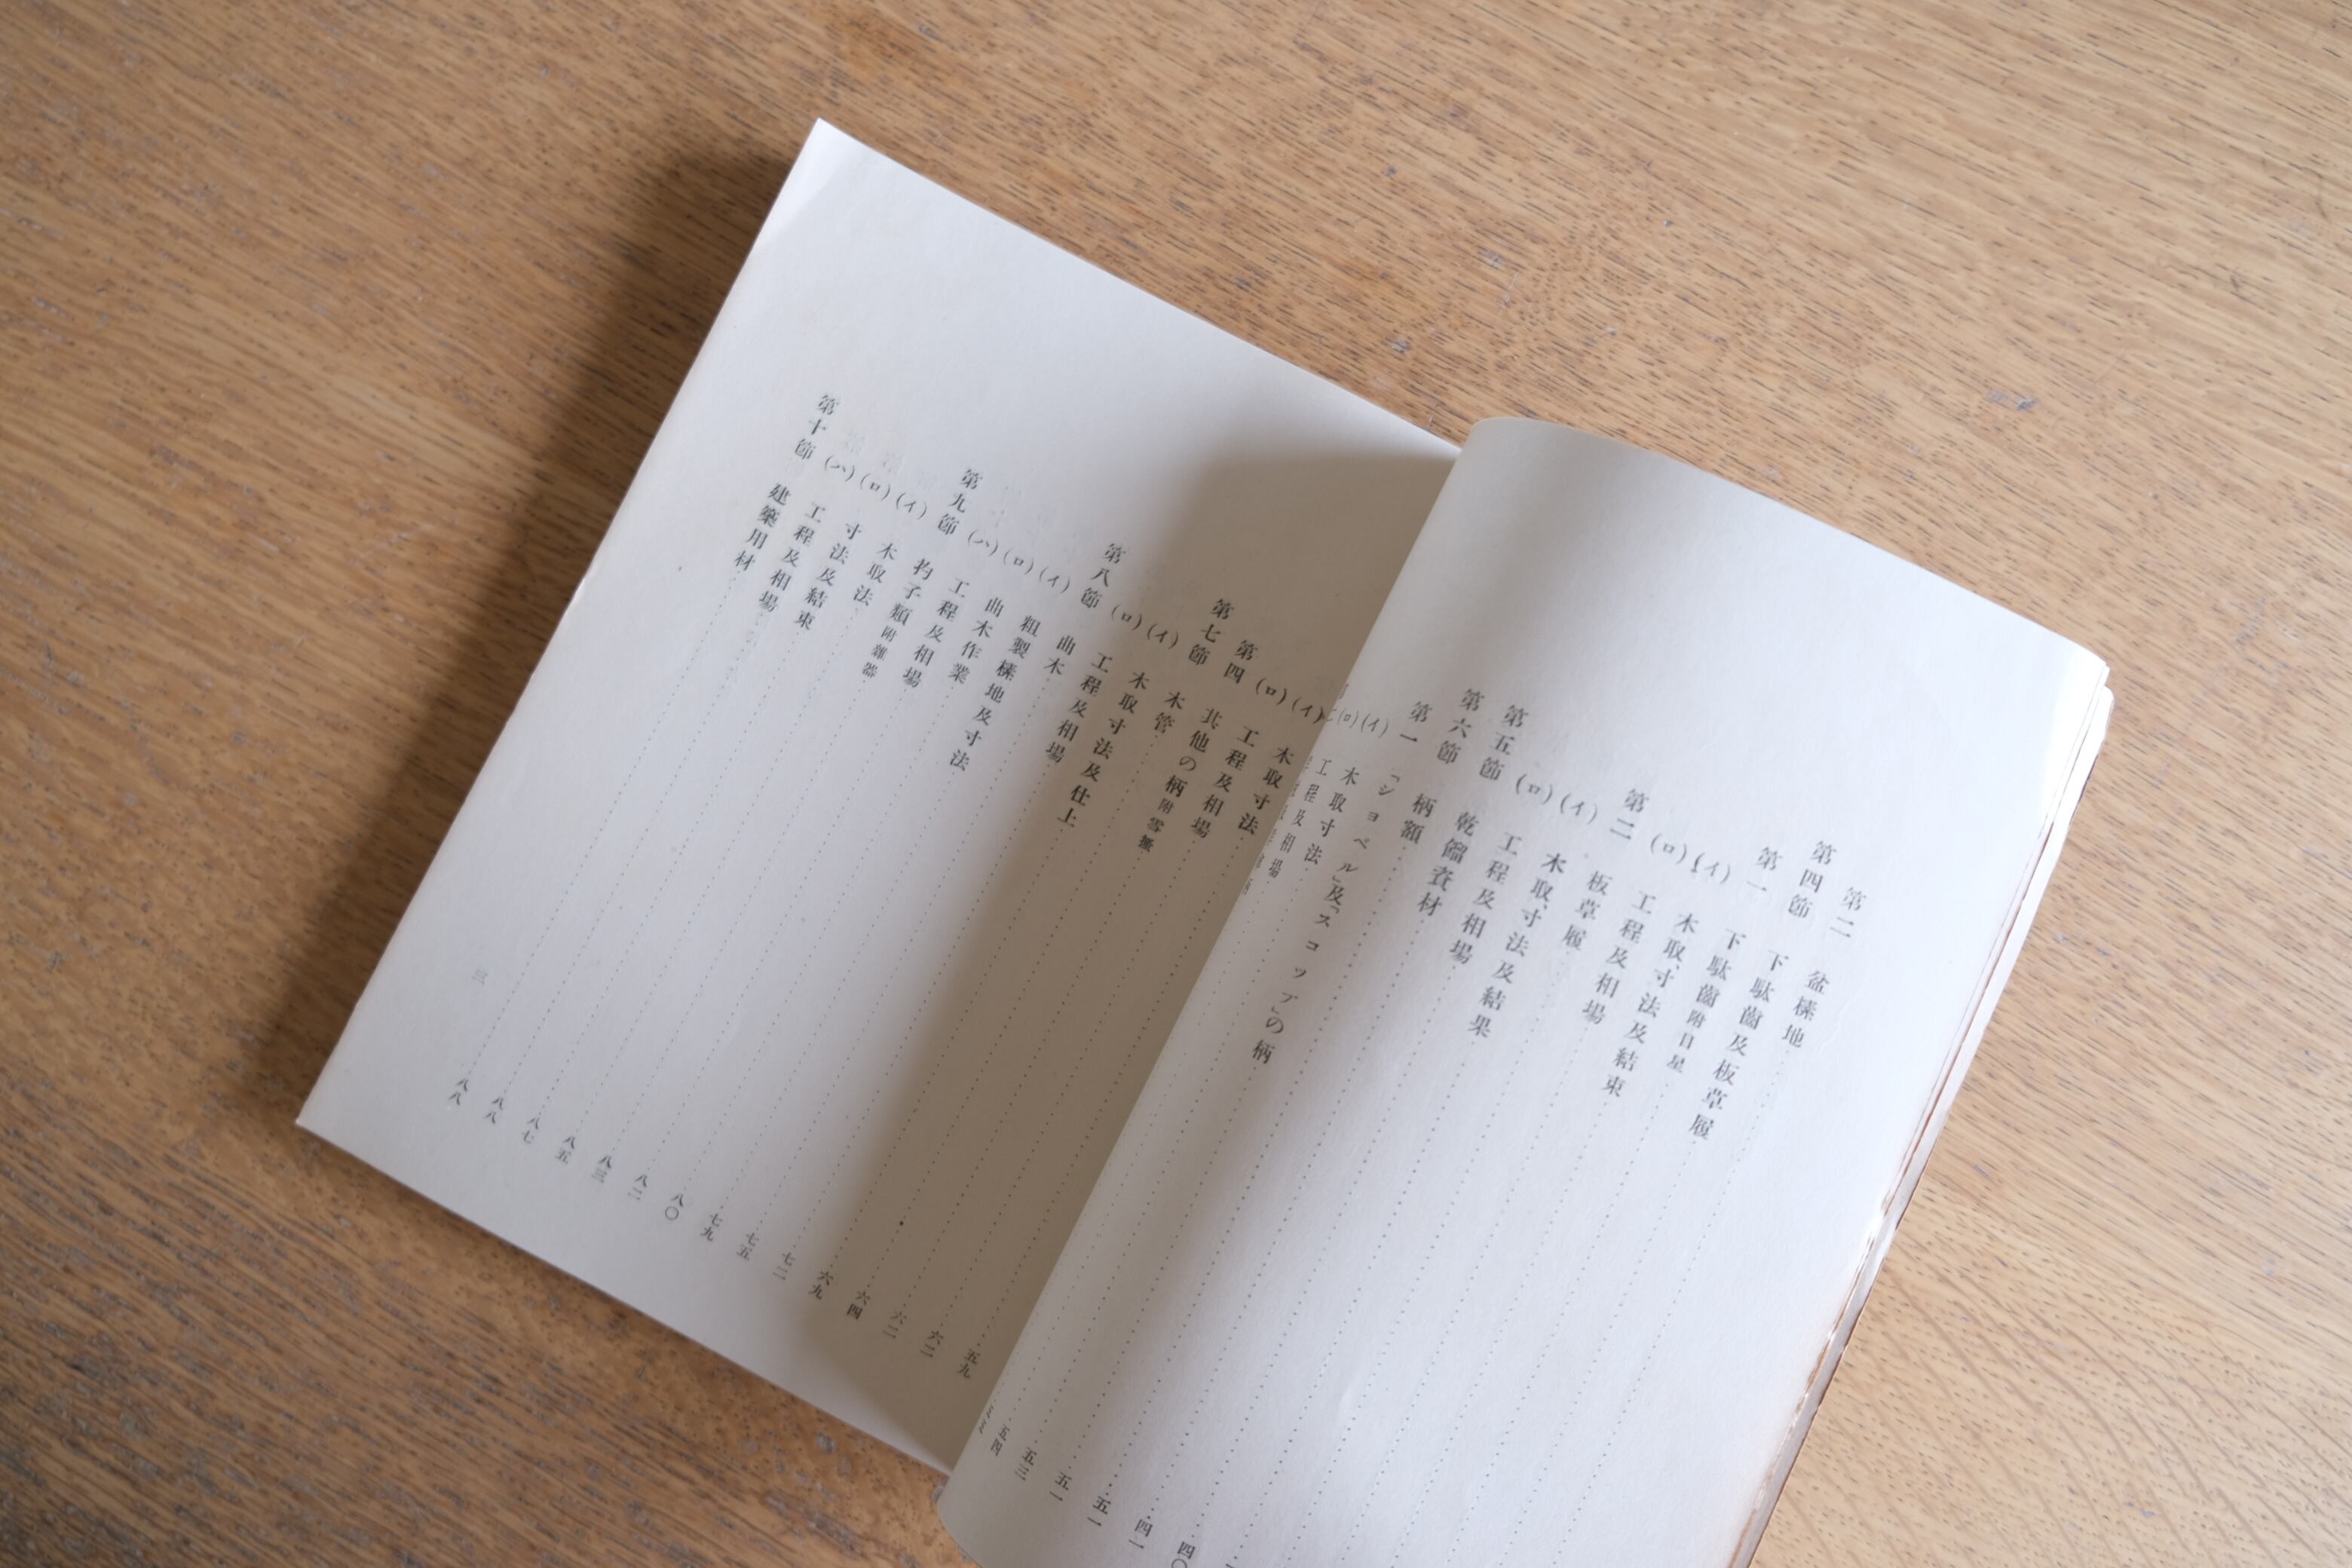 第二　盆榡地
第四節　下駄齒及板草履
第一　下駄齒附目星
(イ)　木取、寸法及結束
(ロ)　工程及相場
第二　板草履
(イ)　木取、寸法及結果
(ロ)　工程及相場……四〇
第五節　乾餾材……四一
第六節　柄類……五一
第一　「シヨベル」及「スコツプ」の柄……五一
(イ)　木取寸法……五三
(ロ)　工程及相場……五四
(イ)　木取寸法……五九
(ロ)　工程及相場……六二
第四　其他の柄附雪橇……六二
第七節　木管……六四
(イ)　木取寸法及仕上……六九
(ロ)　工程及相場……七二
第八節　曲木……七五
(イ)　粗製榡地及寸法……七九
(ロ)　曲木作業……八〇
(ハ)　工程及相場……八二
第九節　杓子類附雜器……八三
(イ)　木取法……八五
(ロ)　寸法及結束……八七
(ハ)　工程及相場……八八
第十節　建築用材……八八
三